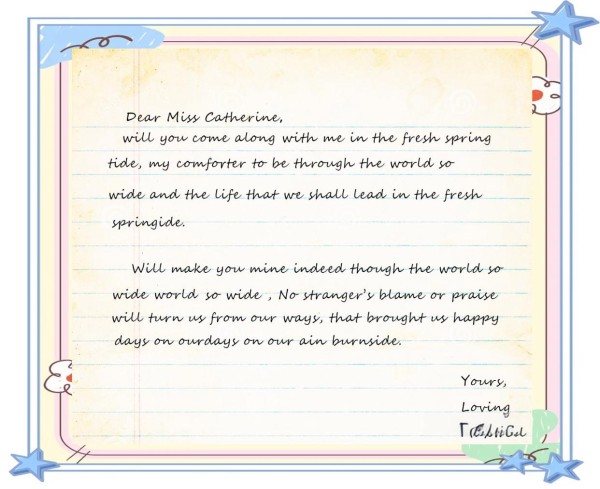 Dear Miss Catherine,
will you come along with me in the fresh spring
tide, my comforter to be through the world so
wide and the life that we shall lead in the fresh
springide.
Will make you mine indeed though the world so
wide world so wide , No stranger's blame or praise
will turn us from our ways, that brought us happy
days on ourdays on our ain burnside.
Yours,
Loving